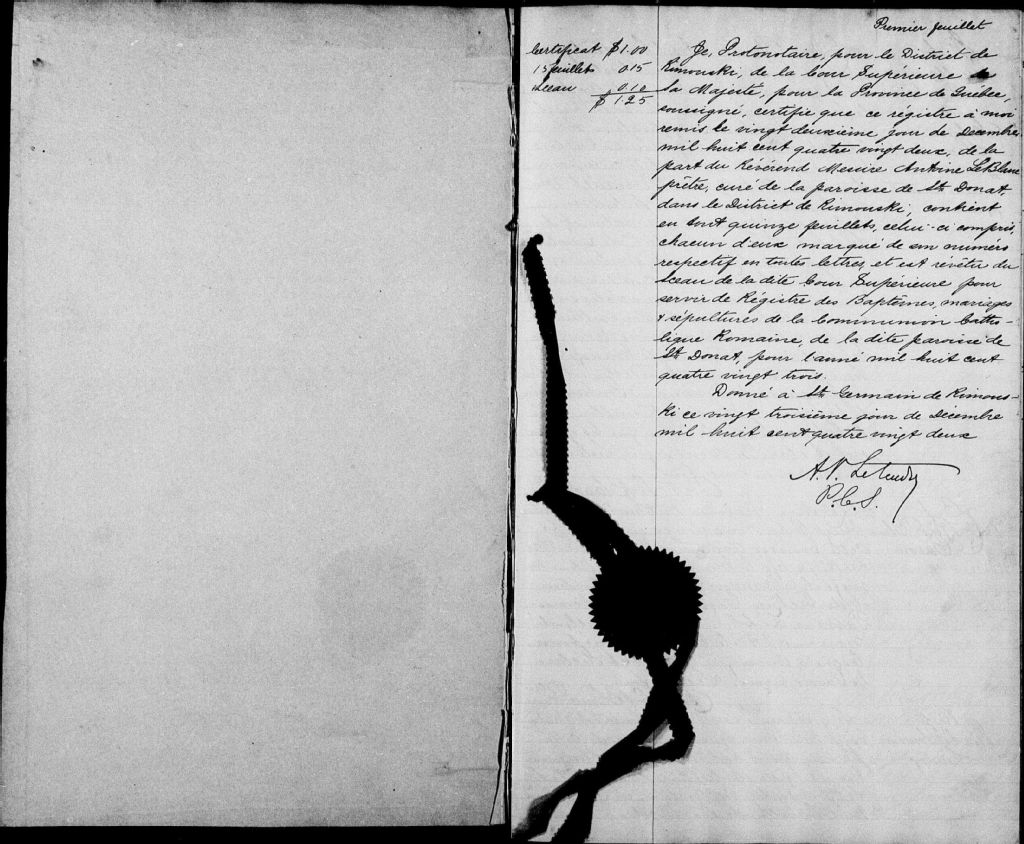 Premier feuillet
Certificat $1.00
15 feuillets 0.15
Sceau 0.10
$1.25
Je, Protonotaire, pour le District de
Rimouski, de la Cour Supérieure de
Sa Majesté, pour la Province de Québec,
soussigné, certifie que ce régistre à moi
remis le vingt deuxième jour de Décembre
mil huit cent quatre vingt deux, de la
part du Révérend Messire Antoine LeBlanc
prêtre, curé de la paroisse de St. Donat,
dans le District de Rimouski, contient
en tout quinze feuillets, celui-ci compris,
chacun d'eux marqué de son numéro
respectif en toutes lettres, et est revêtu du
Sceau de la dite Cour Supérieure pour
servir de Régistre des Baptêmes, mariages
& sépultures de la Communion Catho-
lique Romaine, de la dite paroisse de
St. Donat, pour l'anné mil huit cent
quatre vingt trois.
Donné à St. Germain de Rimous-
ki ce vingt troisième jour de Décembre
mil huit cent quatre vingt deux
P.C.S.